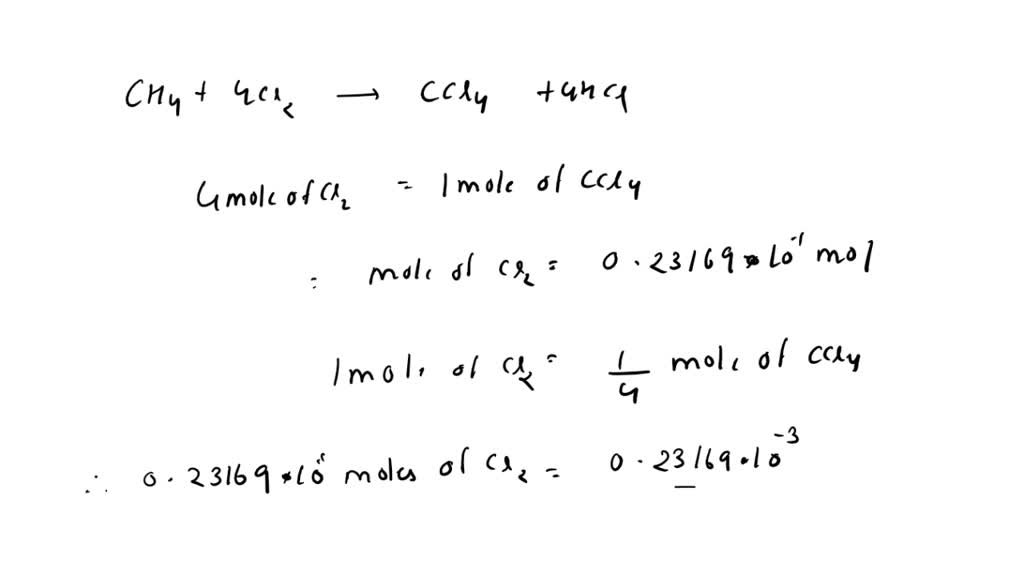 CH4 + 4Cl2 → CCl4 + 4HCl
4 mole of Cl2 = 1 mole of CCl4
= mole of Cl2 = 0.23169 * 10^-1 mol
1 mole of Cl2 = 1/4 mole of CCl4
∴ 0.23169 * 10^-1 moles of Cl2 = 0.23169 * 10^-3